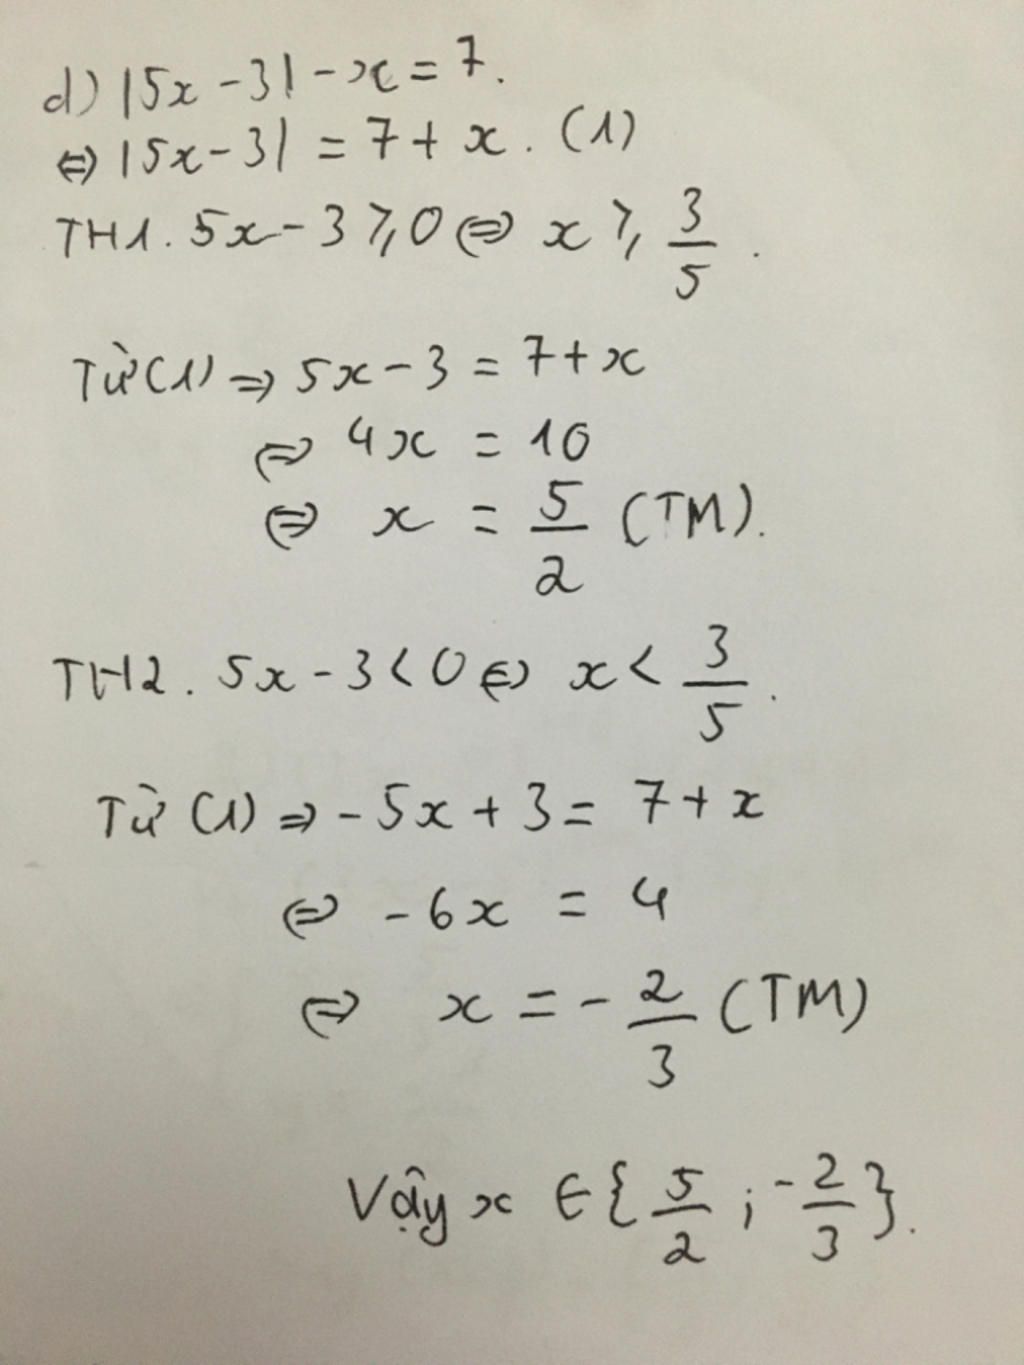 d) |5x - 3| - x = 7.
⇔ |5x - 3| = 7 + x. (1)
TH1. 5x - 3 ⩾ 0 ⇔ x ⩾ 3/5.
Từ (1) ⇒ 5x - 3 = 7 + x
⇔ 4x = 10
⇔ x = 5/2 (TM).
TH2. 5x - 3 < 0 ⇔ x < 3/5.
Từ (1) ⇒ -5x + 3 = 7 + x
⇔ -6x = 4
⇔ x = -2/3 (TM)
Vậy x ∈ {5/2 ; -2/3}.